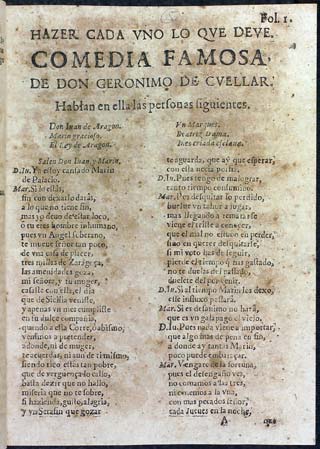 Fol. 1.
HAZER CADA VNO LO QVE DEVE.
COMEDIA FAMOSA,
DE DON GERONIMO DE CVELLAR.
Hablan en ella las personas siguientes.
Don Iuan de Aragon.
Marin gracioso.
El Rey de Aragon.
Vn Marques.
Beatriz dama.
Ines criada esclava.
Salen Don Iuan, y Marin.
D.Iu. Ya estoy cansado Marin
de Palacio.
Mar. Si lo estàs,
con dexarlo daràs,
a lo que no tiene fin,
mas yo devo de estar loco,
ò tu eres hombre inhumano,
pues vn Angel soberano,
te mueve señor tan poco,
de vna casa de placer,
tres millas de Zaragoça,
las amenidades goza,
mi señora, y tu muger,
casaste con ella, el dia
que de Sicilia veniste,
y apenas vn mes cumpliste
en su dulce compañia,
quando a ella Corte,
venimos a pretender,
adonde, ni de muger,
te acuerdas, ni aun de ti mismo,
siendo rico estàs tan pobre,
que de verguença lo callo,
hasta dezir que no hallo,
miseria que no te sobre,
si hazienda, gusto, alegria,
y vn Serafin que gozar
te aguarda, que ay que esperar,
con esta necia porfia.
D.Iu. Pues tengo de malograr,
tanto tiempo consumido.
Mar. Por desquitar lo perdido,
buelve vn tahur a jugar,
mas llegando a rematarse
viene el triste a conocer,
que el mal no estuvo en perder,
sino en querer desquitarse,
si mi voto has de seguir,
pierde el tiempo que has gastado,
no te duelas del passado,
duelete del por venir.
D.Iu. Si al tiempo Marin les dexo,
esse influxo passarà.
Mar. Si es desatino no harà,
que es vn galapago el viejo.
D.Iu. Pues nada viene a importar,
que algo mas de pena en fin,
a donde ay tantas Marin,
poco puede embaraçar.
Mar. Vengate de la fortuna,
pues el desengaño ves,
no comamos a las tres,
ni cenemos a la vna,
con mas pecados señor,
cada Jueves en la noche,
A
que